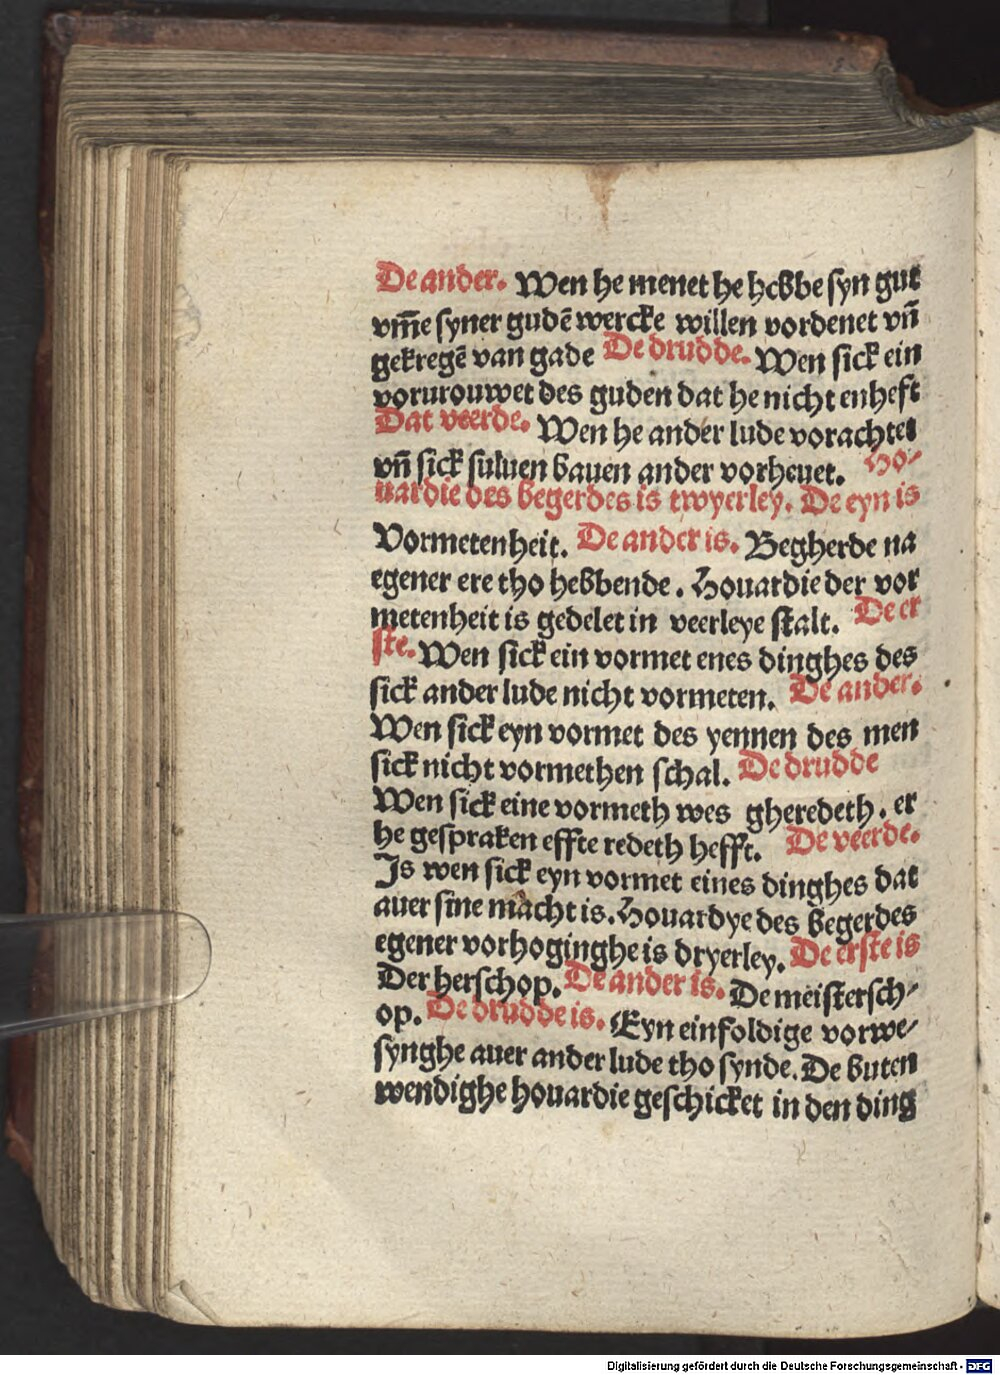 De ander. Wen he menet he hebbe syn gut
vm̄e syner gudē wercke willen vordenet vn̄
gekregē van gade De drudde. Wen sick ein
vorurouwet des guden dat he nicht enheft
Dat veerde. Wen he ander lude vorachtet
vn̄ sick suluen bauen ander vorheuet. Ho⸗
uardie des begerdes is twyerley. De eyn is
Vormetenheit. De ander is. Begherde na
egener ere tho hebbende. Houardie der vor
metenheit is gedelet in veerleye stalt. De er
ste. Wen sick ein vormet enes dinghes des
sick ander lude nicht vormeten. De ander.
Wen sick eyn vormet des yennen des men
sick nicht vormethen schal. De drudde
Wen sick eine vormeth wes gheredeth. er
he gespraken effte redeth hefft. De veerde.
Is wen sick eyn vormet eines dinghes dat
auer sine macht is. Houardye des begerdes
egener vorhoginghe is dryerley. De erste is
Der herschop. De ander is. De meistersch⸗
op. De drudde is. Eyn einfoldige vorwe⸗
synghe auer ander lude tho synde. De buten
wendighe houardie geschicket in den ding
Digitalisierung gefördert durch die Deutsche Forschungsgemeinschaft - DFG